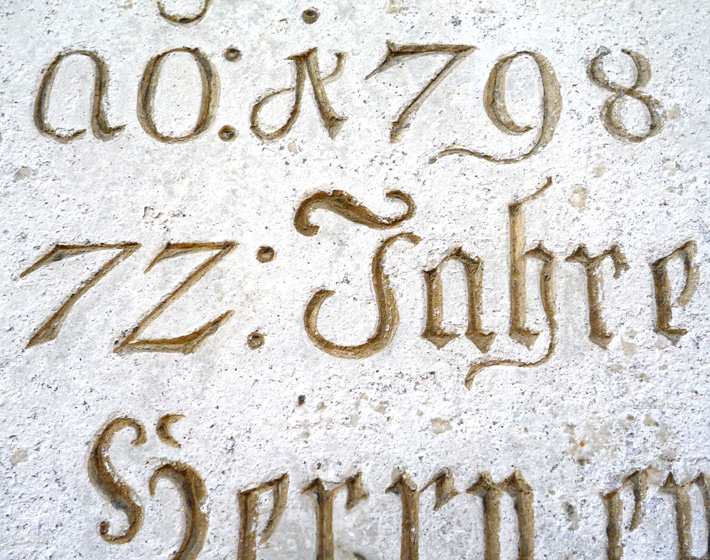 ao: 1798
72: Jahre
Herrn en